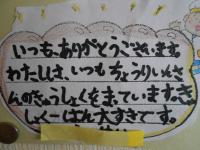 いつも、ありがとうございます
わたしは、いつもちょうりいんさ
んのきゅうしょくをまっています。き
しくーはん大すきです。